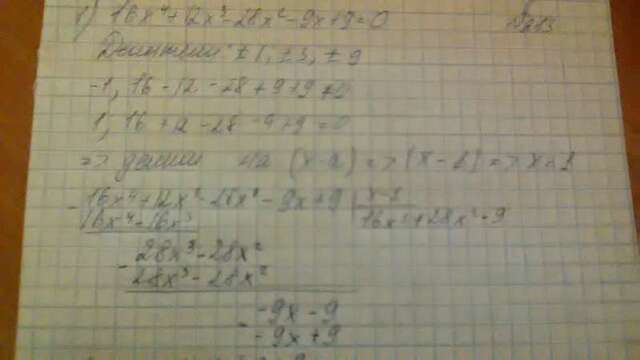 16x⁴+12x³-28x²-9x+9=0
± 1, ± 3, ± 9
-1, 16 - 12 - 28 + 9 + 9 ≠ 0
1, 16 + 12 - 28 - 9 + 9 = 0
=> на (x-a) => (x-1) => x=1
- 16x⁴+12x³-28x²-9x+9 | x-1
16x⁴-16x³ 16x³+28x²-9
- 28x³-28x²
28x³-28x²
- -9x-9
-9x+9